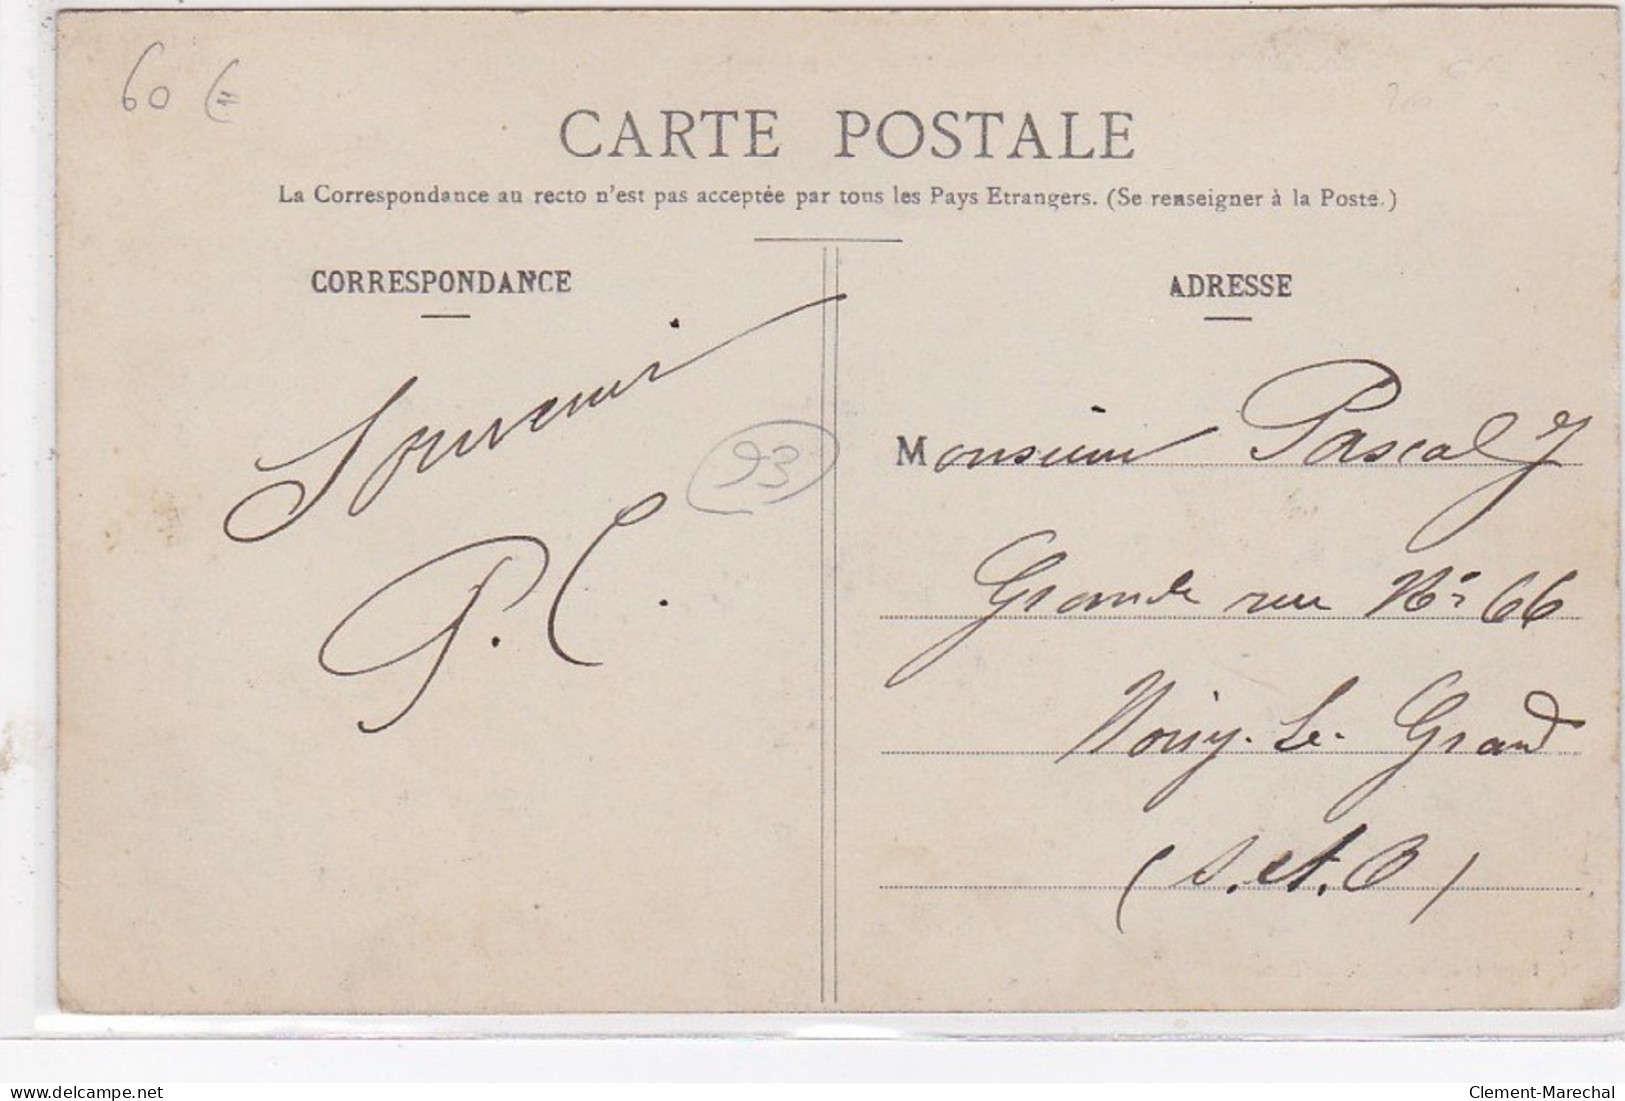 60 €
CARTE POSTALE
La Correspondance au recto n'est pas acceptée par tous les Pays Etrangers. (Se renseigner à la Poste.)
CORRESPONDANCE
Souvenir
P. C.
93
ADRESSE
Monsieur Pascal J
Grande rue No 66
Noisy-Le-Grand
(S. et. O)
www.delcampe.net
Clement-Marechal